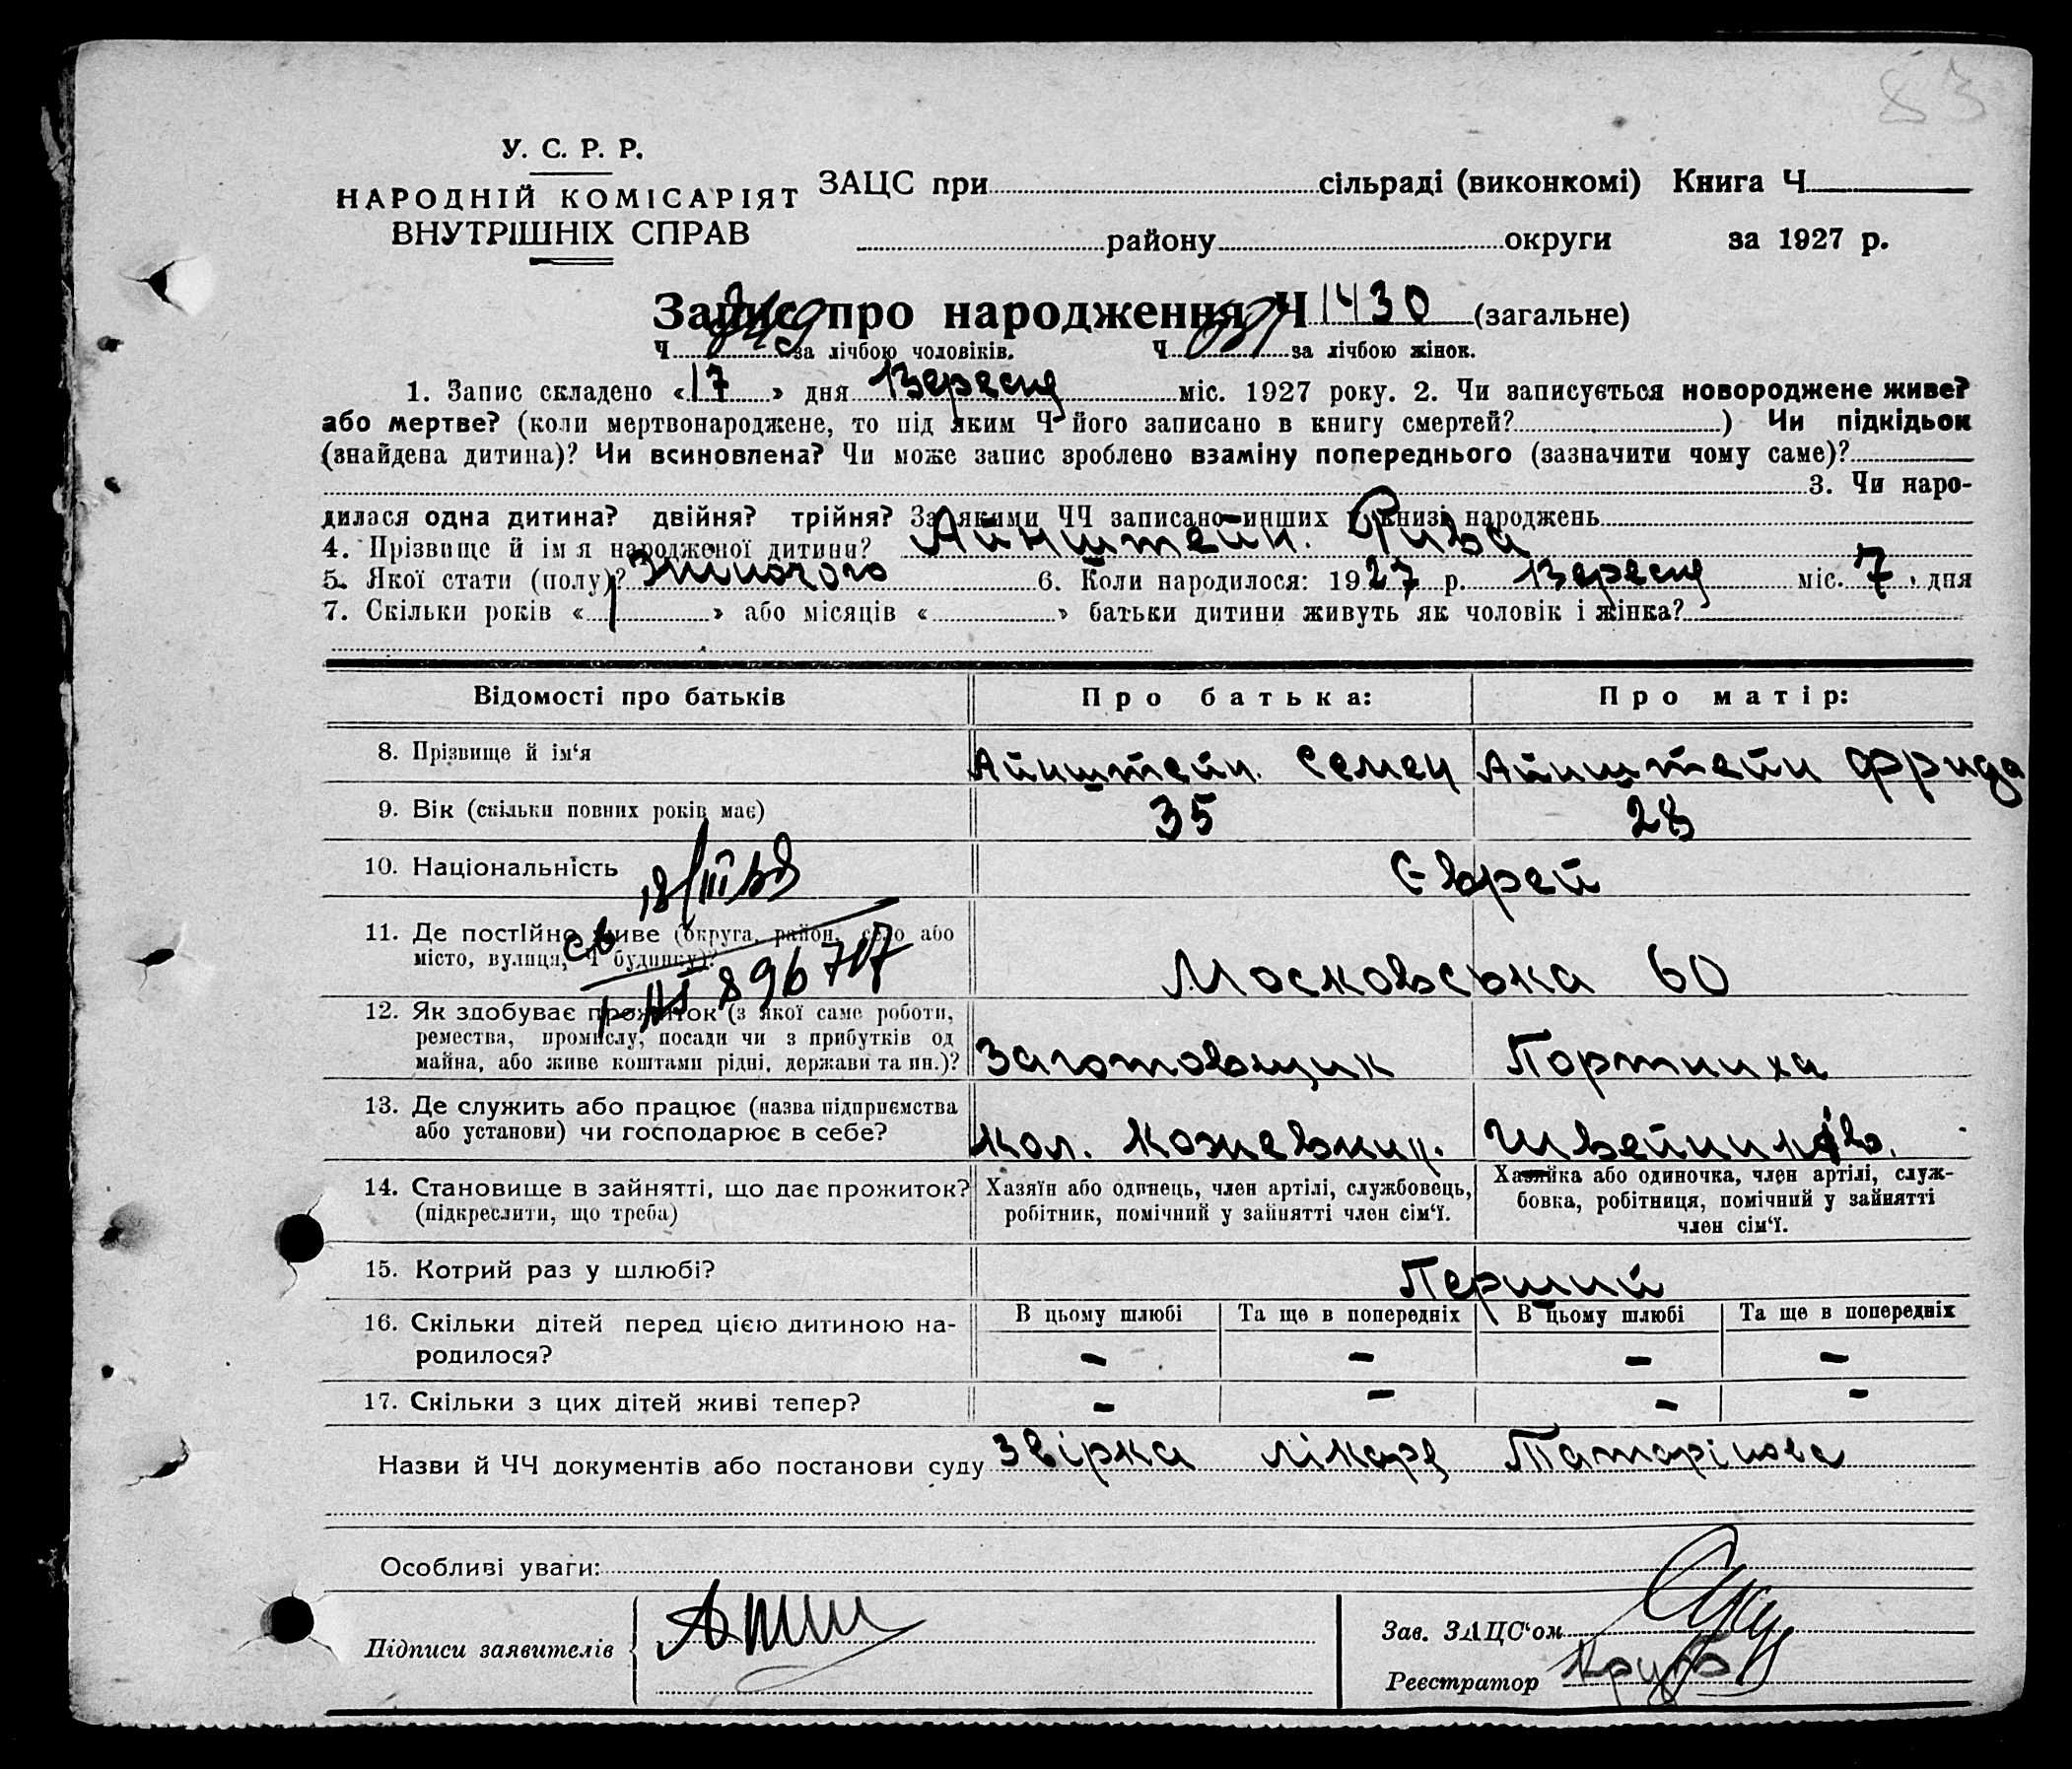 83
У. С. Р. Р.
НАРОДНІЙ КОМІСАРІЯТ
ВНУТРІШНІХ СПРАВ
ЗАЦС при сільраді (виконкомі) Книга Ч
району округи за 1927 р.
Запис про народження Ч 1430 (загальне)
Ч за лічбою чоловіків. Ч за лічбою жінок.
1. Запис складено «17» дня Вересня міс. 1927 року. 2. Чи записується новороджене живе?
або мертве? (коли мертвонароджене, то під яким Ч його записано в книгу смертей? ) Чи підкідьок
(знайдена дитина)? Чи всиновлена? Чи може запис зроблено взаміну попереднього (зазначити чому саме)?
3. Чи наро-
дилася одна дитина? двійня? трійня? За якими ЧЧ записано инших в книзі народжень
4. Прізвище й ім я народженої дитини? Айнштейн. Рива
5. Якої стати (полу)? Жиночого 6. Коли народилося: 1927 р. Вересня міс. 7 дня
7. Скільки років « » або місяців « » батьки дитини живуть як чоловік і жінка?
Відомості про батьків Про батька: Про матір:
8. Прізвище й ім‘я Айнштейн. Семен Айнштейн Фрида
9. Вік (скільки повних років має) 35 28
10. Національність Єврей
18/III
11. Де постійно живе (округа, район, село або
місто, вулиця, Ч будинку)? Московська 60
св
896707
12. Як здобуває прожиток (з якої саме роботи,
ремества, промислу, посади чи з прибутків од
майна, або живе коштами рідні, держави та ин.)? Заготовщик Портниха
13. Де служить або працює (назва підприємства
або установи) чи господарює в себе? Кол. Кожевник. Швейників.
14. Становище в зайнятті, що дає прожиток?
(підкреслити, що треба)
Хазяїн або одинець, член артілі, службовець,
робітник, помічний у зайнятті член сім‘ї.
Хазяйка або одиночка, член артілі, служ-
бовка, робітниця, помічний у зайнятті
член сім‘ї.
15. Котрий раз у шлюбі? Перший
16. Скільки дітей перед цією дитиною на-
родилося?
В цьому шлюбі Та ще в попередніх В цьому шлюбі Та ще в попередніх
– – – –
17. Скільки з цих дітей живі тепер? – – – –
Назви й ЧЧ документів або постанови суду Звірка лікаря Татарінова
Особливі уваги:
Підписи заявителів
Зав. ЗАЦС‘ом
Реєстратор